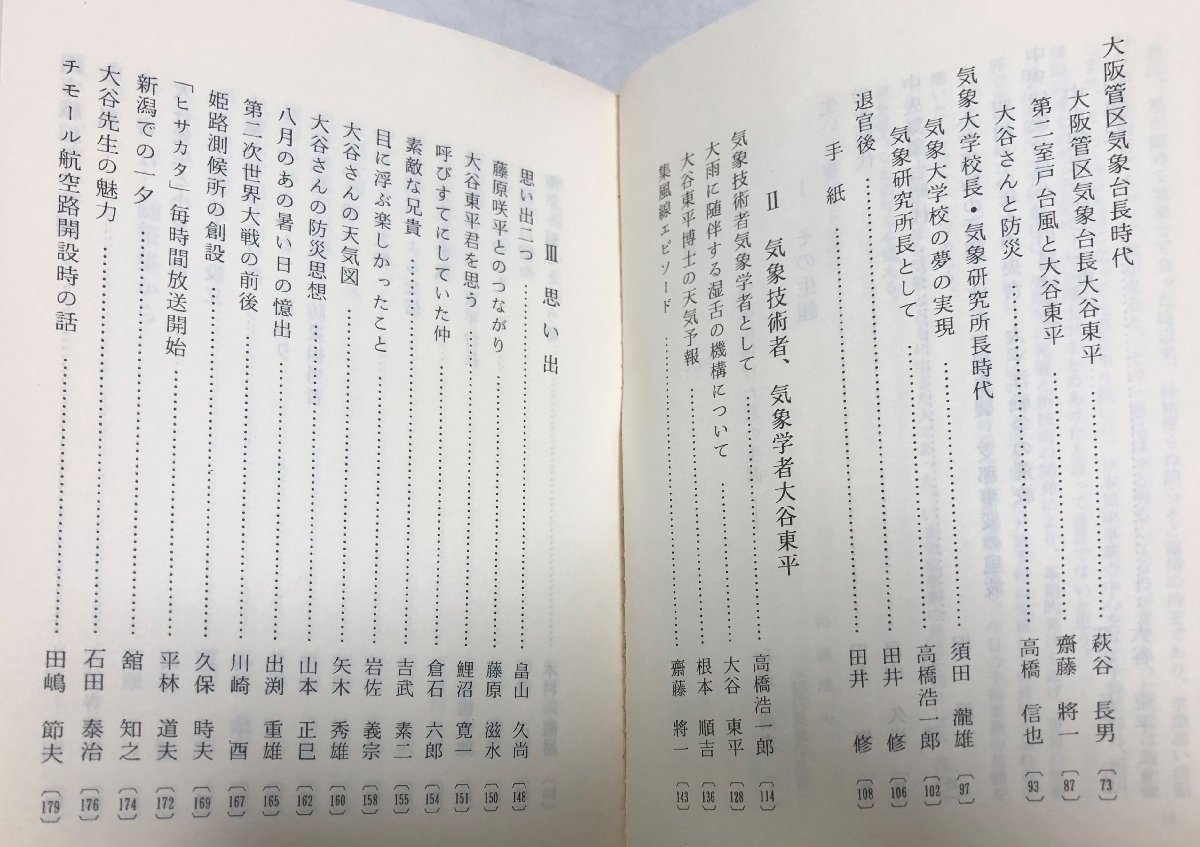 大阪管区気象台長時代
大阪管区気象台長大谷東平……………萩谷 長男〔73〕
第二室戸台風と大谷東平……………齋藤 將一〔87〕
大谷さんと防災……………高橋 信也〔93〕
気象大学校長・気象研究所長時代
気象大学校の夢の実現……………須田 瀧雄〔97〕
気象研究所長として……………高橋浩一郎〔102〕
退官後……………田井 修〔106〕
手 紙……………田井 修〔108〕
Ⅱ 気象技術者、気象学者大谷東平
気象技術者気象学者として……………高橋浩一郎〔114〕
大雨に随伴する湿舌の機構について……………大谷 東平〔128〕
大谷東平博士の天気予報……………根本 順吉〔136〕
集風線エピソード……………齋藤 將一〔143〕
Ⅲ 思い出
思い出二つ……………畠山 久尚〔148〕
藤原咲平とのつながり……………藤原 滋水〔150〕
大谷東平君を思う……………鯉沼 寛一〔151〕
呼びすてにしていた仲……………倉石 六郎〔154〕
素敵な兄貴……………吉武 素二〔155〕
目に浮ぶ楽しかったこと……………岩佐 義宗〔158〕
大谷さんの天気図……………矢木 秀雄〔160〕
大谷さんの防災思想……………山本 正巳〔162〕
八月のあの暑い日の憶出……………出渕 重雄〔165〕
第二次世界大戦の前後……………川崎 酉〔167〕
姫路測候所の創設……………久保 時夫〔169〕
「ヒサカタ」毎時間放送開始……………平林 道夫〔172〕
新潟での一夕……………舘 知之〔174〕
大谷先生の魅力……………石田 泰治〔176〕
チモール航空路開設時の話……………田嶋 節夫〔179〕